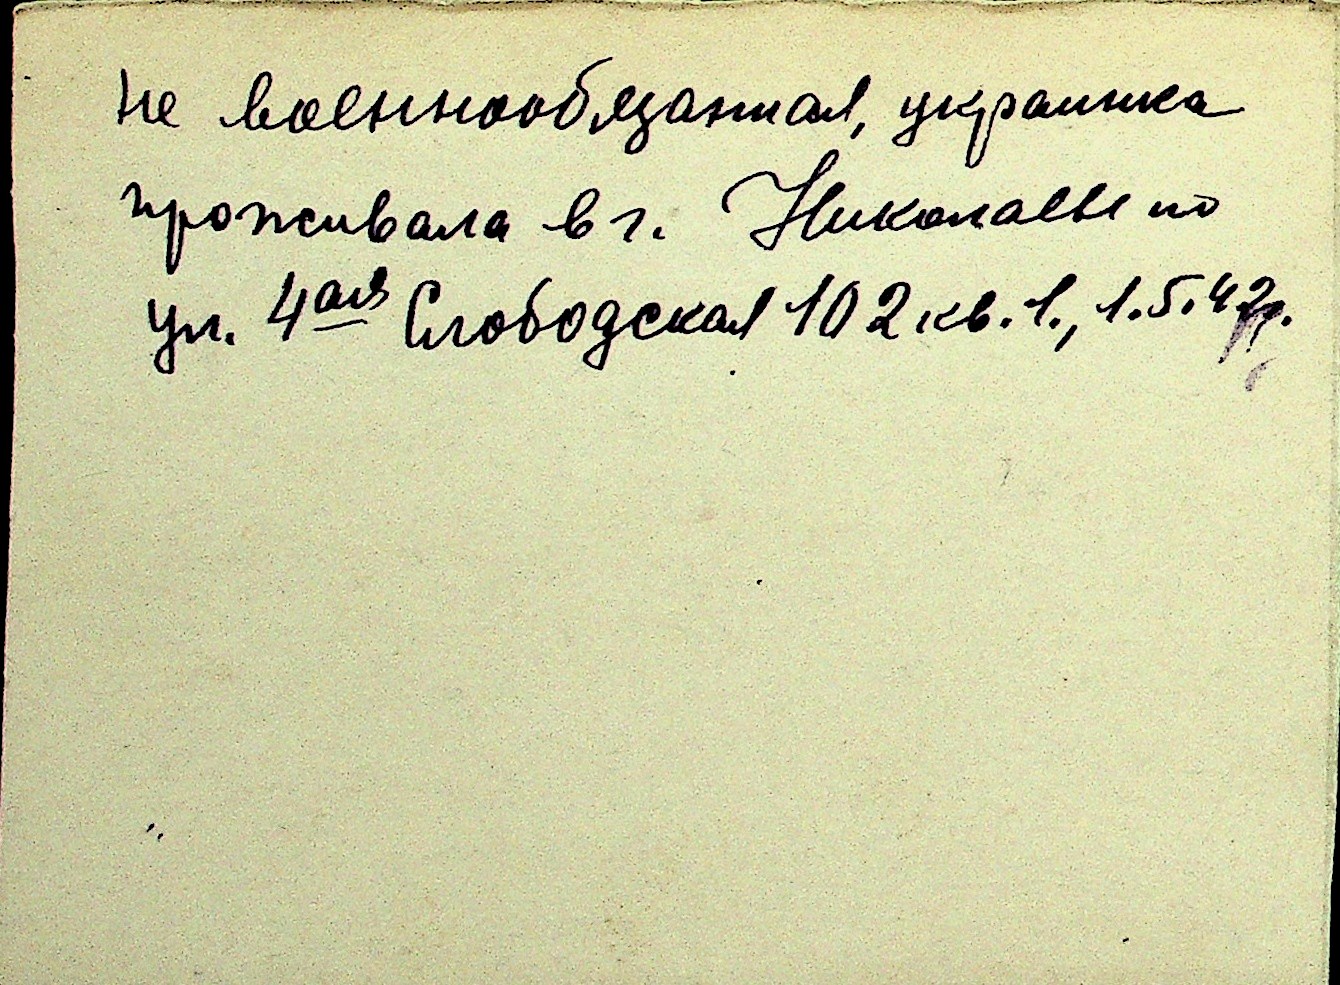 не военнообязанная, украинка
проживала в г. Николаеве по
ул. 4ая Слободская 102 кв. 1., 1.5.42г.